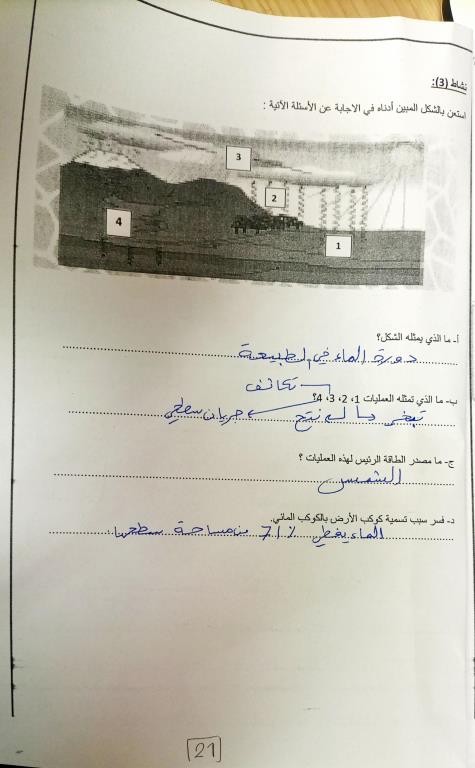 نشاط (3):
استعن بالشكل المبين أدناه في الاجابة عن الأسئلة الآتية :
3
2
4
1
أ- ما الذي يمثله الشكل؟
دورة الماء في الطبيعة
تكاثف
ب- ما الذي تمثله العمليات 1، 2، 3، 4؟
تبخر نتح جريان سطحي
ج- ما مصدر الطاقة الرئيس لهذه العمليات ؟
الشمس
د- فسر سبب تسمية كوكب الأرض بالكوكب المائي.
الماء يغطي 71% من مساحة سطحها.
21